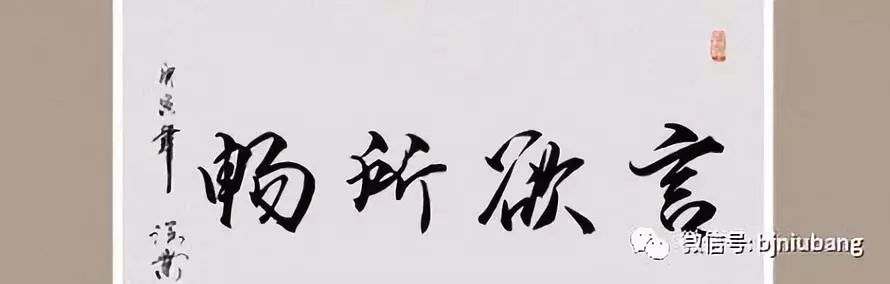 暢所欲言
庚寅年
微信号: bjniubang